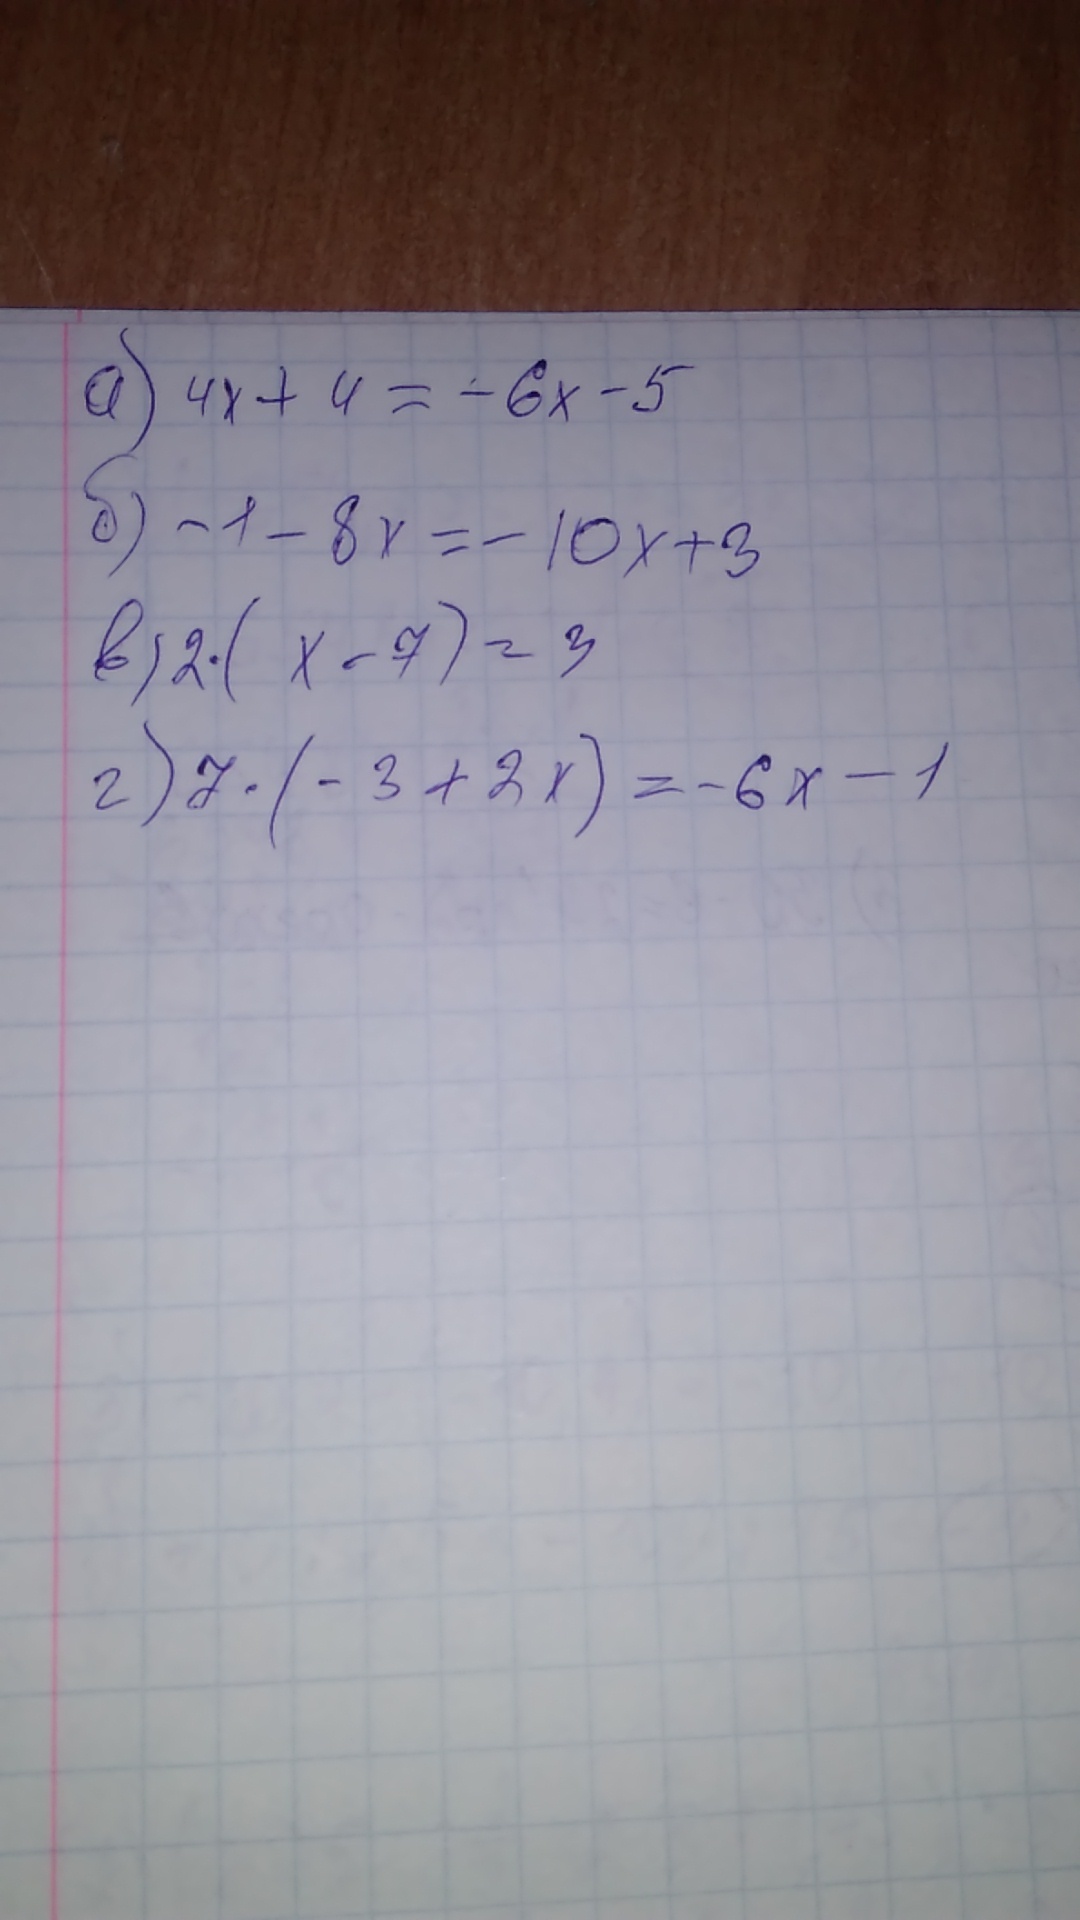 а) 4x + 4 = -6x - 5
б) -1 - 8x = -10x + 3
в) 2·( x - 7) = 3
г) 7·(- 3 + 2x) = -6x - 1